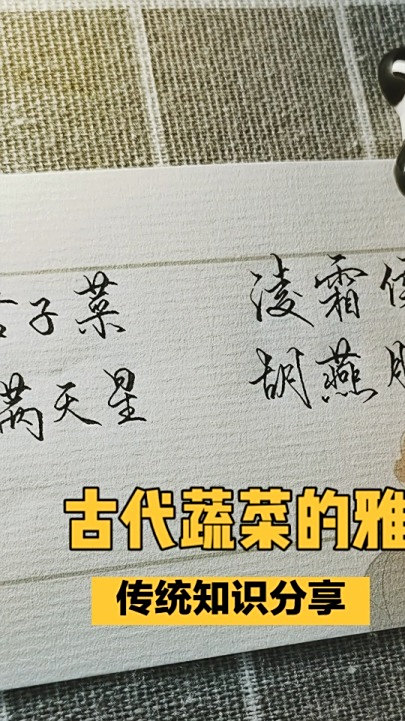 子菜 凌霜
满天星 胡燕
古代蔬菜的雅
传统知识分享